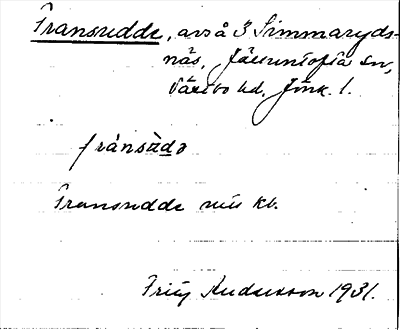 Fransudde, avs å 3 Simmaryds-
näs, Jälluntofta sn,
Västbo hd, Jönk. l.
fránsùdə
Fransudde
Andersson 1931.